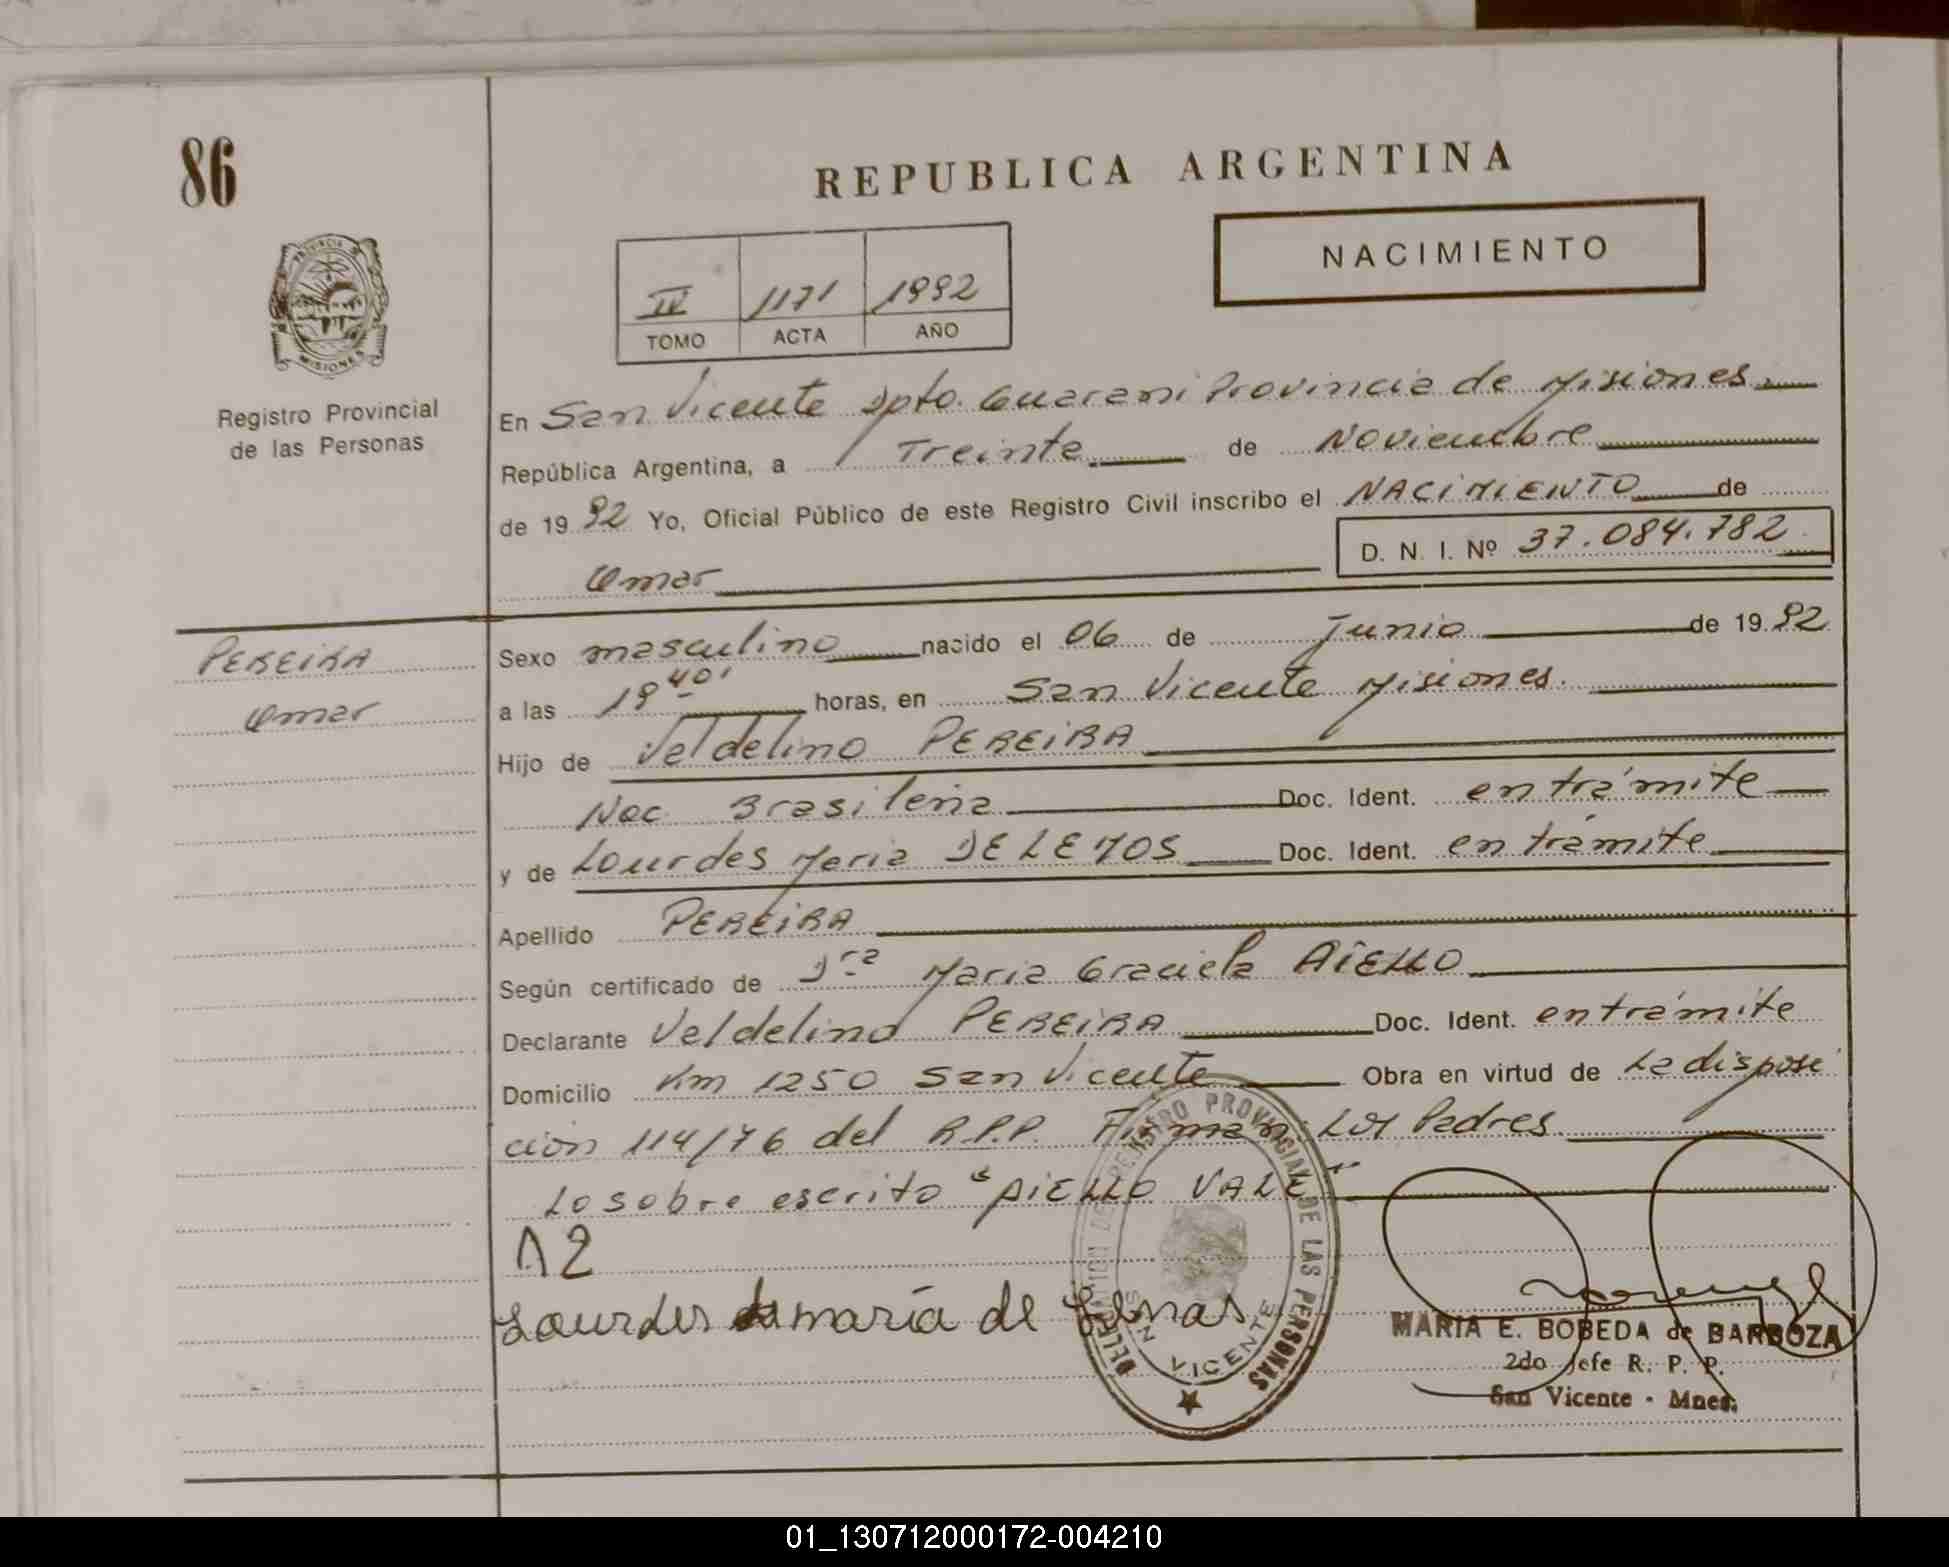 86
REPUBLICA ARGENTINA
NACIMIENTO
IV 1171 1992
TOMO ACTA AÑO
PROVINCIA DE
MISIONES
Registro Provincial
de las Personas
En San Vicente Dpto. Guarani Provincia de Misiones.
República Argentina, a Treinta de Noviembre
de 19 92 Yo, Oficial Público de este Registro Civil inscribo el NACIMIENTO de
D. N. I. Nº 37.084.782
Omar
PEREIRA
Omar
Sexo masculino nacido el 06 de Junio de 19 92
a las 19 40' horas, en San Vicente Misiones.
Hijo de Veldelino PEREIRA
Nac. Brasileña Doc. Ident. en trámite
y de Lourdes Maria DE LEMOS Doc. Ident. en trámite
Apellido PEREIRA
Según certificado de Dra Maria Graciela AIELLO
Declarante Veldelino PEREIRA Doc. Ident. en trámite
Domicilio Km 1250 San Vicente Obra en virtud de La disposi
ción 114/76 del R.P.P. Firman: Los Padres
Lo sobre escrito "AIELLO VALE"
Lourdes maría de
DELEGACION DE REGISTRO PROVINCIAL DE LAS PERSONAS
SAN VICENTE
MARIA E. BOBEDA de BARBOZA
2do Jefe R. P. P.
San Vicente - Mnes.
01_130712000172-004210